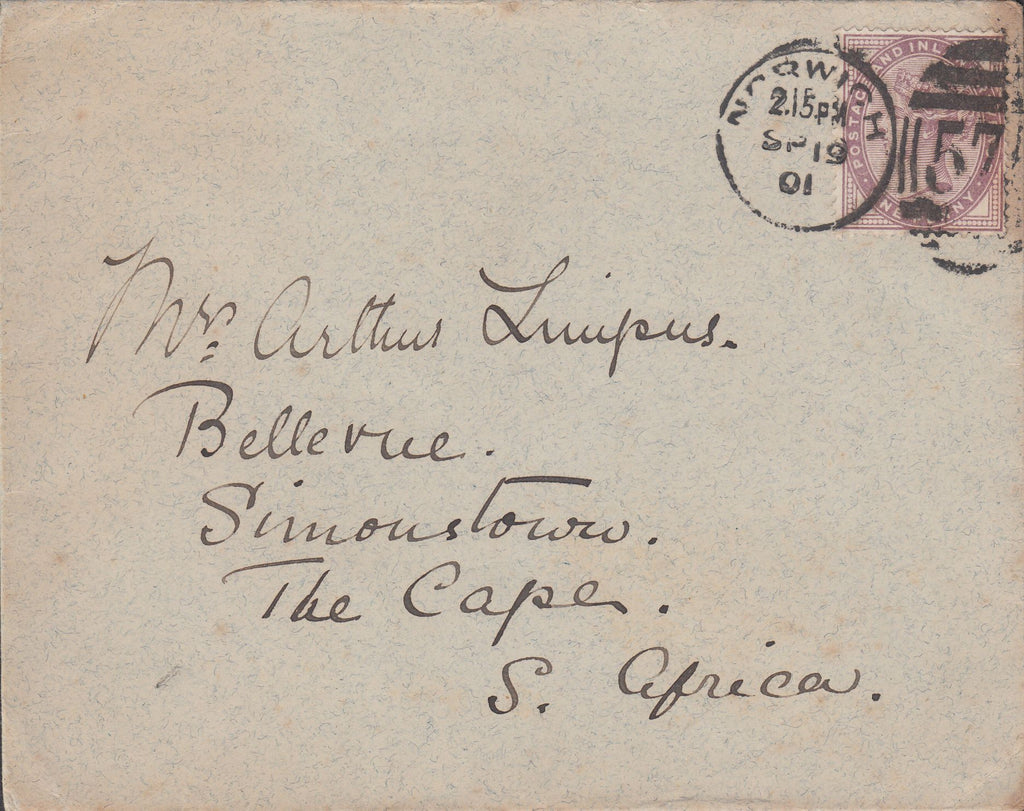 NORWICH
2.15.PM
SP 19
01
POSTAGE AND INL
NE NNY
57
Mr. Arthur Limpus.
Bellevue.
Simonstown.
The Cape.
S. Africa.